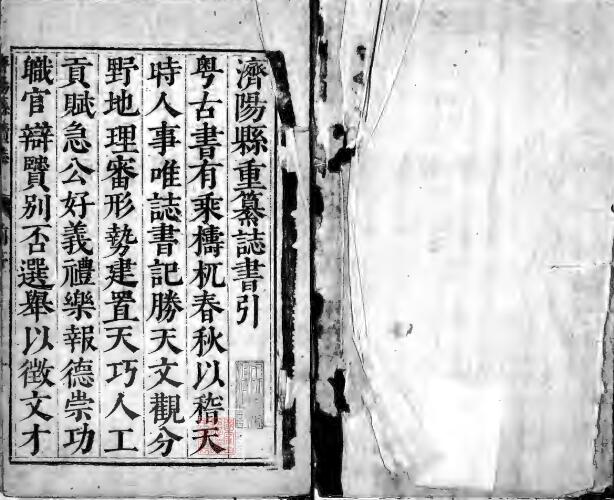 濟陽縣重纂誌書引
粤古書有乘檮杌春秋以稽天
時人事唯誌書記勝天文觀分
野地理審形勢建置天巧人工
貢賦急公好義禮樂報德崇功
職官辯賢別否選舉以徵文才